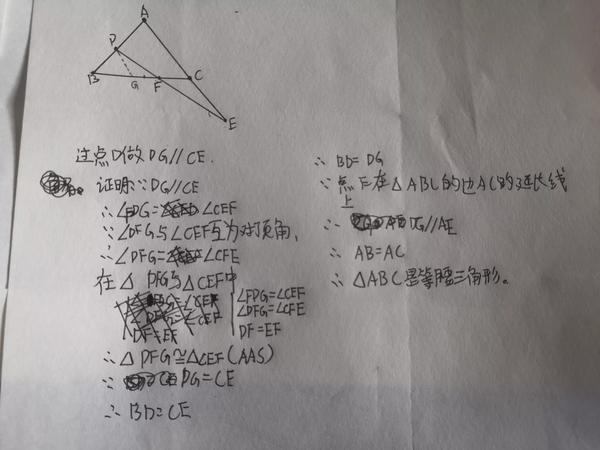 A
D
B
G
F
C
E
过点D做DG//CE.
证明∵DG//CE
∴∠FDG=∠CEF
∵∠DFG与∠CEF互为对顶角,
∴∠DFG=∠CFE
在△DFG与△CEF中
∠FDG=∠CEF
∠DFG=∠CFE
DF=EF
∴△DFG≌△CEF(AAS)
∵DG=CE
∴BD=CE
∴BD=DG
∵点E在△ABC的边AC的延长线
上
∴DG//AE
∴AB=AC
∴△ABC是等腰三角形。